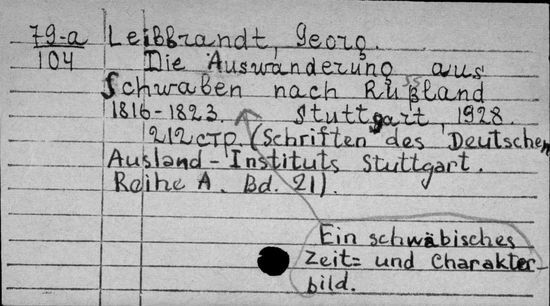 79-a Leibbrandt, Georg.
104 Die Auswanderung aus
Schwaben nach Rußland
1816-1823. Stuttgart, 1928.
212 стр. (Schriften des Deutschen
Ausland-Instituts Stuttgart.
Reihe A. Bd. 21).
Ein schwäbisches
Zeit= und Charakter-
bild.